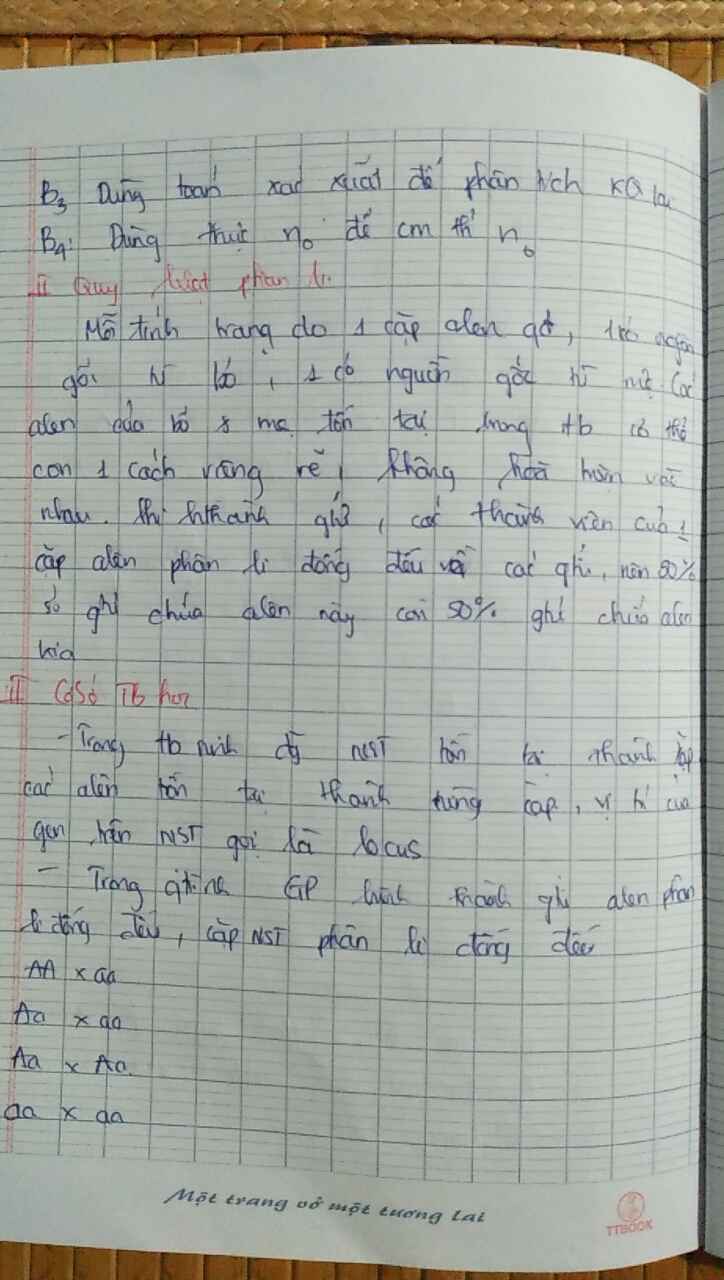 B3 Dùng toán xác xuất để phân tích KQ lai
B4: Dùng thực no để cm tn no
II Quy luật phân li.
Mỗi tính trạng do 1 cặp alen qđ, 1 có nguồn
gốc từ bố, 1 có nguồn gốc từ mẹ. Các
alen của bố & mẹ tồn tại trong tb cơ thể
con 1 cách riêng rẽ, không hoà trộn với
nhau. Khi hthành gtử, các thành viên của 1
cặp alen phân li đồng đều về các gtử, nên 50%
số gtử chứa alen này còn 50% gtử chứa alen
kia
II CơSở TB học
- Trong tb sinh dg NST tồn tại thành cặp
các alen tồn tại thành từng cặp, vị trí của
gen trên NST gọi là locus
- Trong qtrình GP hình thành gtử alen phân
li đồng đều, cặp NST phân li đồng đều
AA x aa
Aa x aa
Aa x Aa
aa x aa
Một trang vở một tương lai
TTBOOK